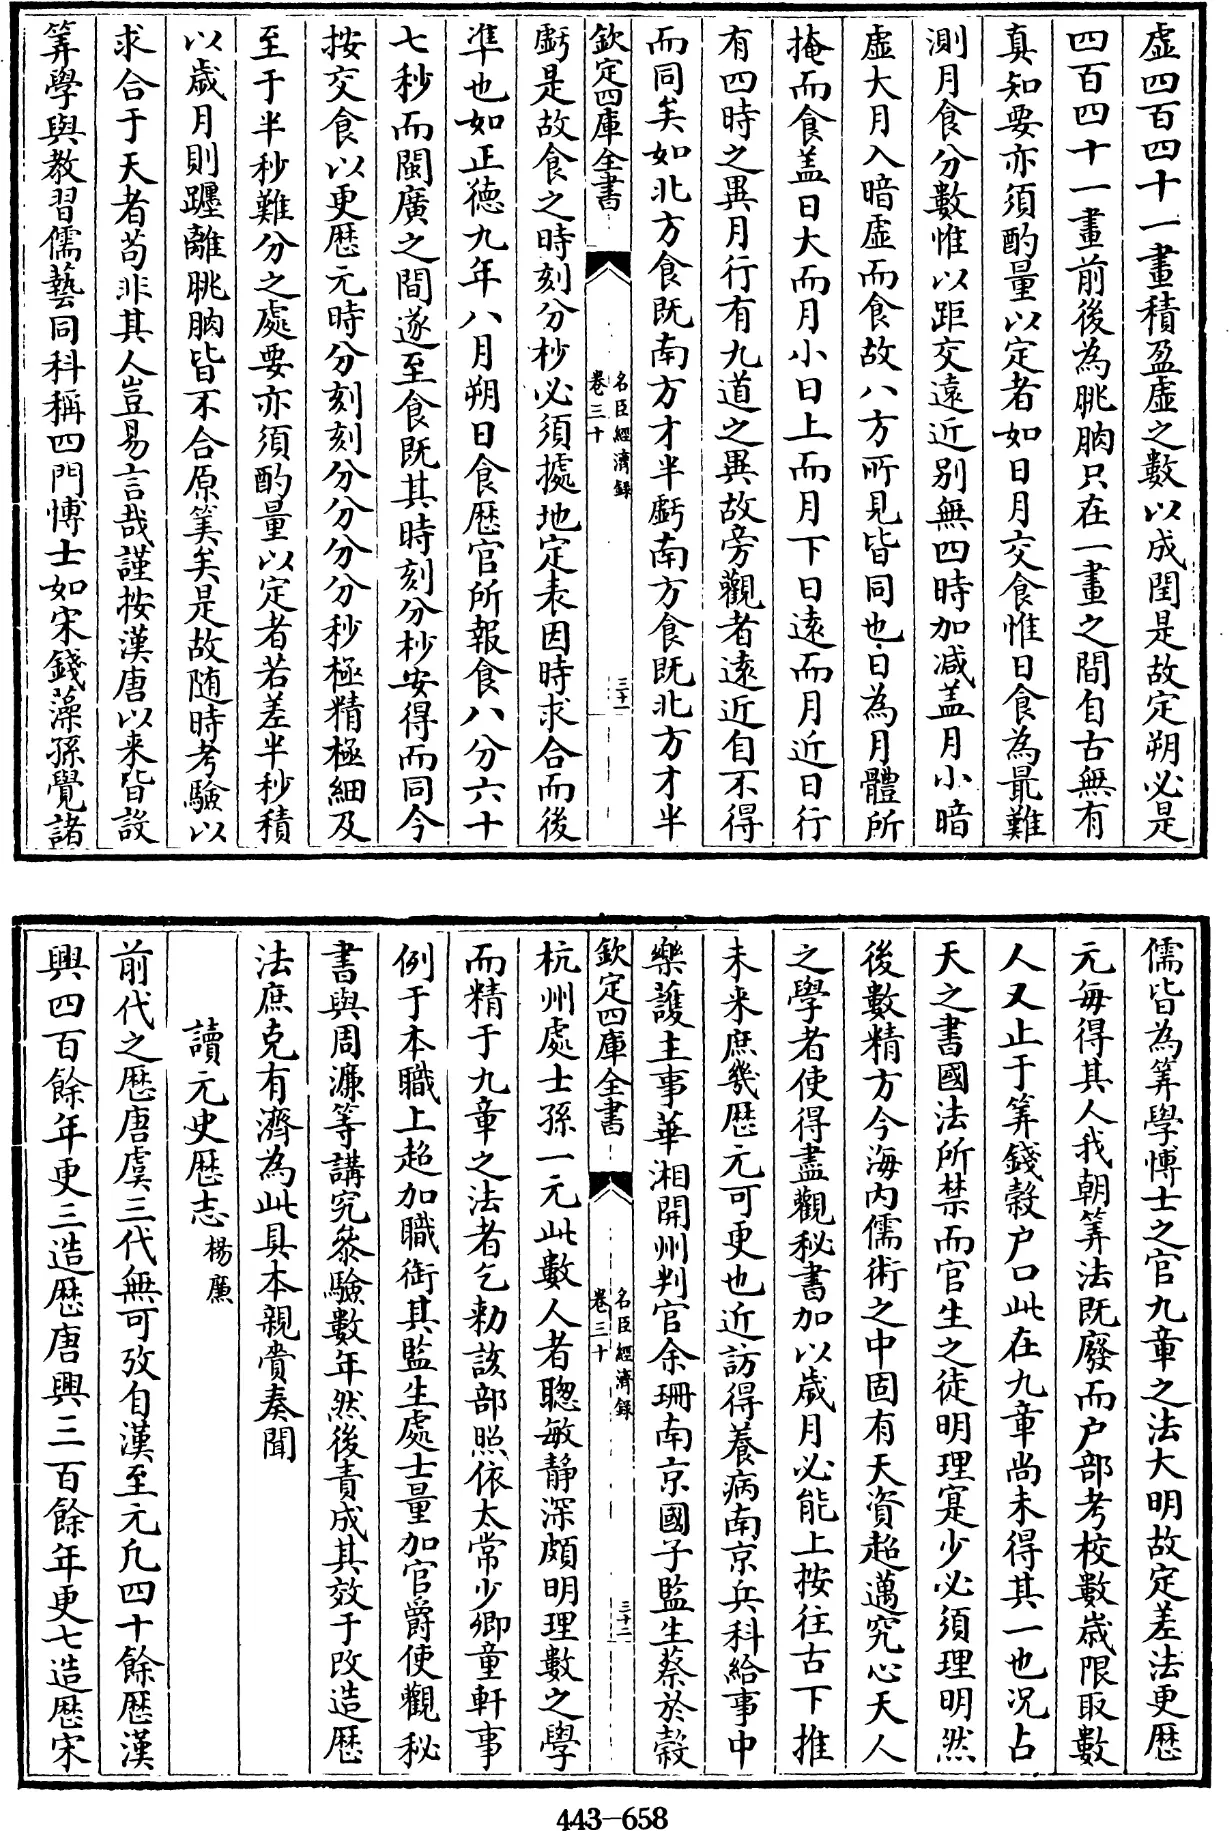 虛四百四十一畫積盈虛之數以成閏是故定朔必是
四百四十一畫前後為朓朒只在一畫之間自古無有
真知要亦須酌量以定者如日月交食惟日食為最難
測月食分數惟以距交遠近别無四時加減盖月小暗
虛大月入暗虛而食故八方所見皆同也日為月體所
掩而食盖日大而月小日上而月下日遠而月近日行
有四時之異月行有九道之異故旁觀者遠近自不得
而同矣如北方食既南方才半虧南方食既北方才半
欽定四庫全書
名臣經濟録
卷三十
三十一
虧是故食之時刻分秒必須據地定表因時求合而後
凖也如正德九年八月朔日食歴官所報食八分六十
七秒而閩廣之間遂至食既其時刻分秒安得而同今
按交食以更歴元時分刻刻分分分分秒極精極細及
至于半秒難分之處要亦須酌量以定者若差半秒積
以歲月則躔離朓朒皆不合原筭矣是故随時考驗以
求合于天者苟非其人豈易言哉謹按漢唐以来皆設
筭學與教習儒藝同科稱四門博士如宋錢藻孫覺諸
儒皆為筭學博士之官九章之法大明故定差法更歴
元每得其人我朝筭法既廢而户部考校數歲限取數
人又止于筭錢穀户口此在九章尚未得其一也况占
天之書國法所禁而官生之徒明理寔少必須理明然
後數精方今海内儒術之中固有天資超邁究心天人
之學者使得盡觀秘書加以歲月必能上按往古下推
未来庶幾歴元可更也近訪得養病南京兵科給事中
樂護主事華湘開州判官余珊南京國子監生蔡於穀
欽定四庫全書
名臣經濟録
卷三十
三十二
杭州處士孫一元此數人者聰敏靜深頗明理數之學
而精于九章之法者乞勅該部照依太常少卿童軒事
例于本職上超加職銜其監生處士量加官爵使觀秘
書與周濂等講究叅驗數年然後責成其效于改造歴
法庶克有濟為此具本親賫奏聞
讀元史歴志 楊廉
前代之歴唐虞三代無可攷自漢至元凡四十餘歴漢
興四百餘年更三造歴唐興三百餘年更七造歴宋
443-658